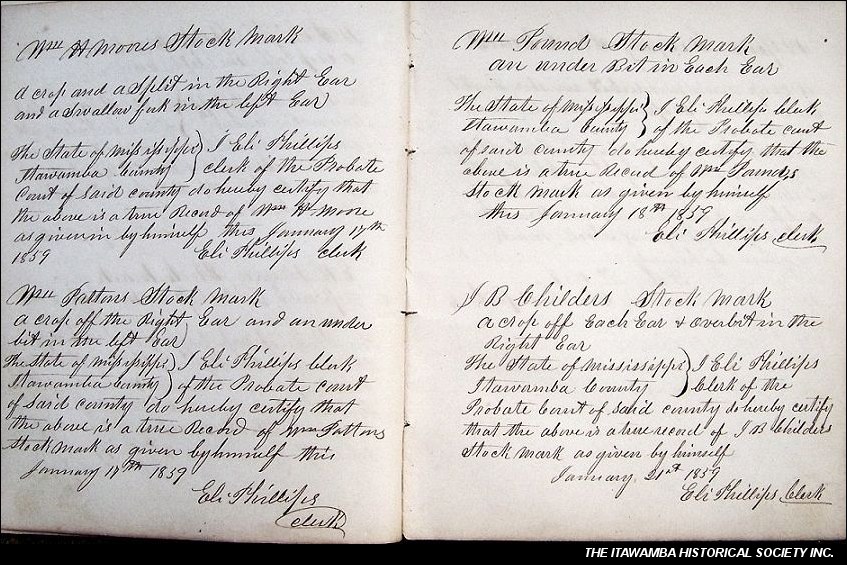 Wm H Moores Stock Mark
a crop and a Split in the Right Ear
and a Swallow fork in the left Ear
The State of Mississippi } I Eli Phillips
Itawamba County } clerk of the Probate
Court of said county do hereby certify that
the above is a true Record of Wm H Moore
as given in by himself this January 17th
1859 Eli Phillips clerk
Wm Pattons Stock Mark
a crop off the Right Ear and an under
bit in the left Ear
The State of Mississippi } I Eli Phillips Clerk
Itawamba County } of the Probate court
of said county do hereby certify that
the above is a true Record of Wm Pattons
Stock mark as given by himself this
January 17th 1859
Eli Phillips
clerk
Wm Pound Stock Mark
an under Bit in Each Ear
The State of Mississippi } I Eli Phillips Clerk
Itawamba County } of the Probate court
of said County do hereby certify that the
above is a true Record of Wm Pounds
Stock Mark as given by himself
this January 18th 1859
Eli Phillips clerk
J B Childers Stock Mark
a crop off Each Ear & overbit in the
Right Ear
The State of Mississippi } I Eli Phillips
Itawamba County } Clerk of the
Probate Court of said county do hereby certify
that the above is a true record of J B Childers
Stock Mark as given by himself
January 21st 1859
Eli Phillips Clerk
THE ITAWAMBA HISTORICAL SOCIETY INC.